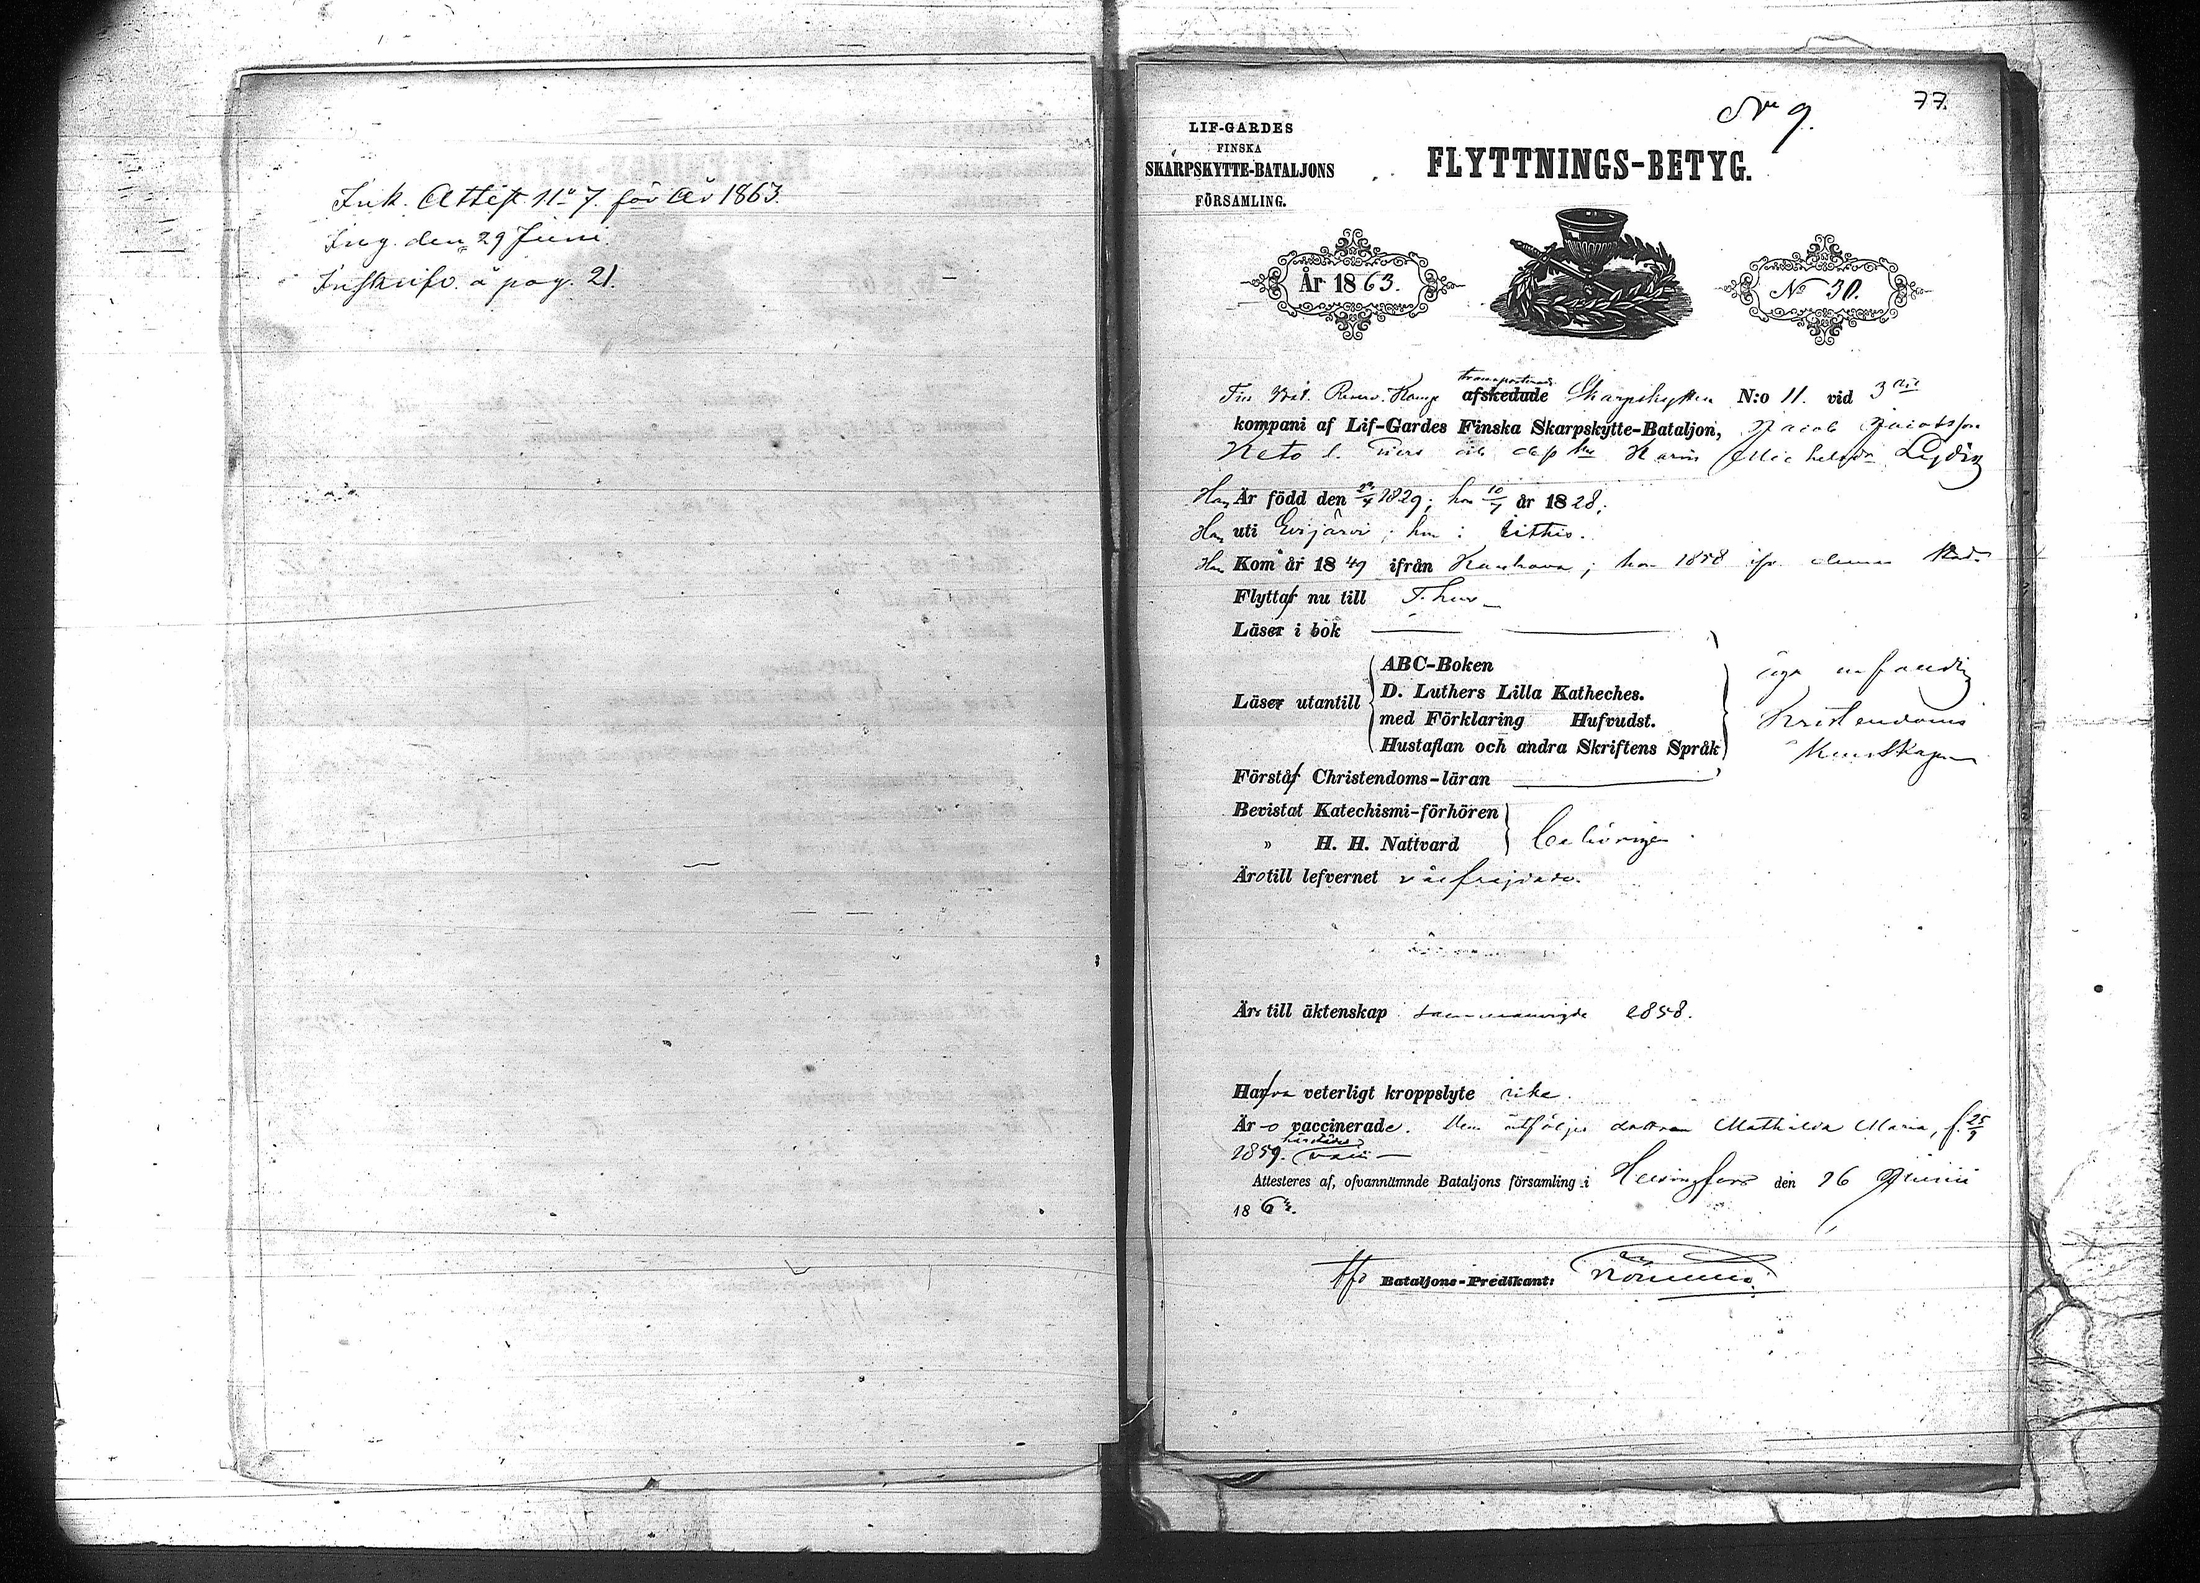 Ink. Attest No 7. för år 1863.
Ing. den 29 Juni.
Inskrifv. å pag. 21.
No 9.
77.
LIF-GARDES
FINSKA
SKARPSKYTTE-BATALJONS
FÖRSAMLING.
FLYTTNINGS-BETYG.
År 1863.
No 30.
transporterade
Komp afskedade Skarpskytten N:o 11. vid 3
kompani af Lif-Gardes Finska Skarpskytte-Bataljon, Jacob Jacobsson
Keto och hu Karin Michelsdr
Han Är född den 1829; hon 10/7 år 1828;
Han uti Evijärvi; hon: Eithis.
Han Kom år 1849 ifrån Kauhava; hon 1858 ifr. denna stad
Flytta nu till
Läser i bok
Läser utantill
ABC-Boken
D. Luthers Lilla Katheches.
med Förklaring Hufvudst.
Hustaflan och andra Skriftens Språk
ega
Kristendoms
kunskaper
Förstå Christendoms-läran
Bevistat Katechismi-förhören
» H. H. Nattvard
behörigen
Äro till lefvernet välfrejdade.
Är till äktenskap sammanvigde 1858.
Hafva veterligt kroppslyte icke.
Är o vaccinerade. Dem åtföljer dottren Mathilda Maria, f. 25/9
1859.
Attesteres af, ofvannämnde Bataljons församling i Helsingfors den 26 Junii
1863.
Bataljons-Predikant: